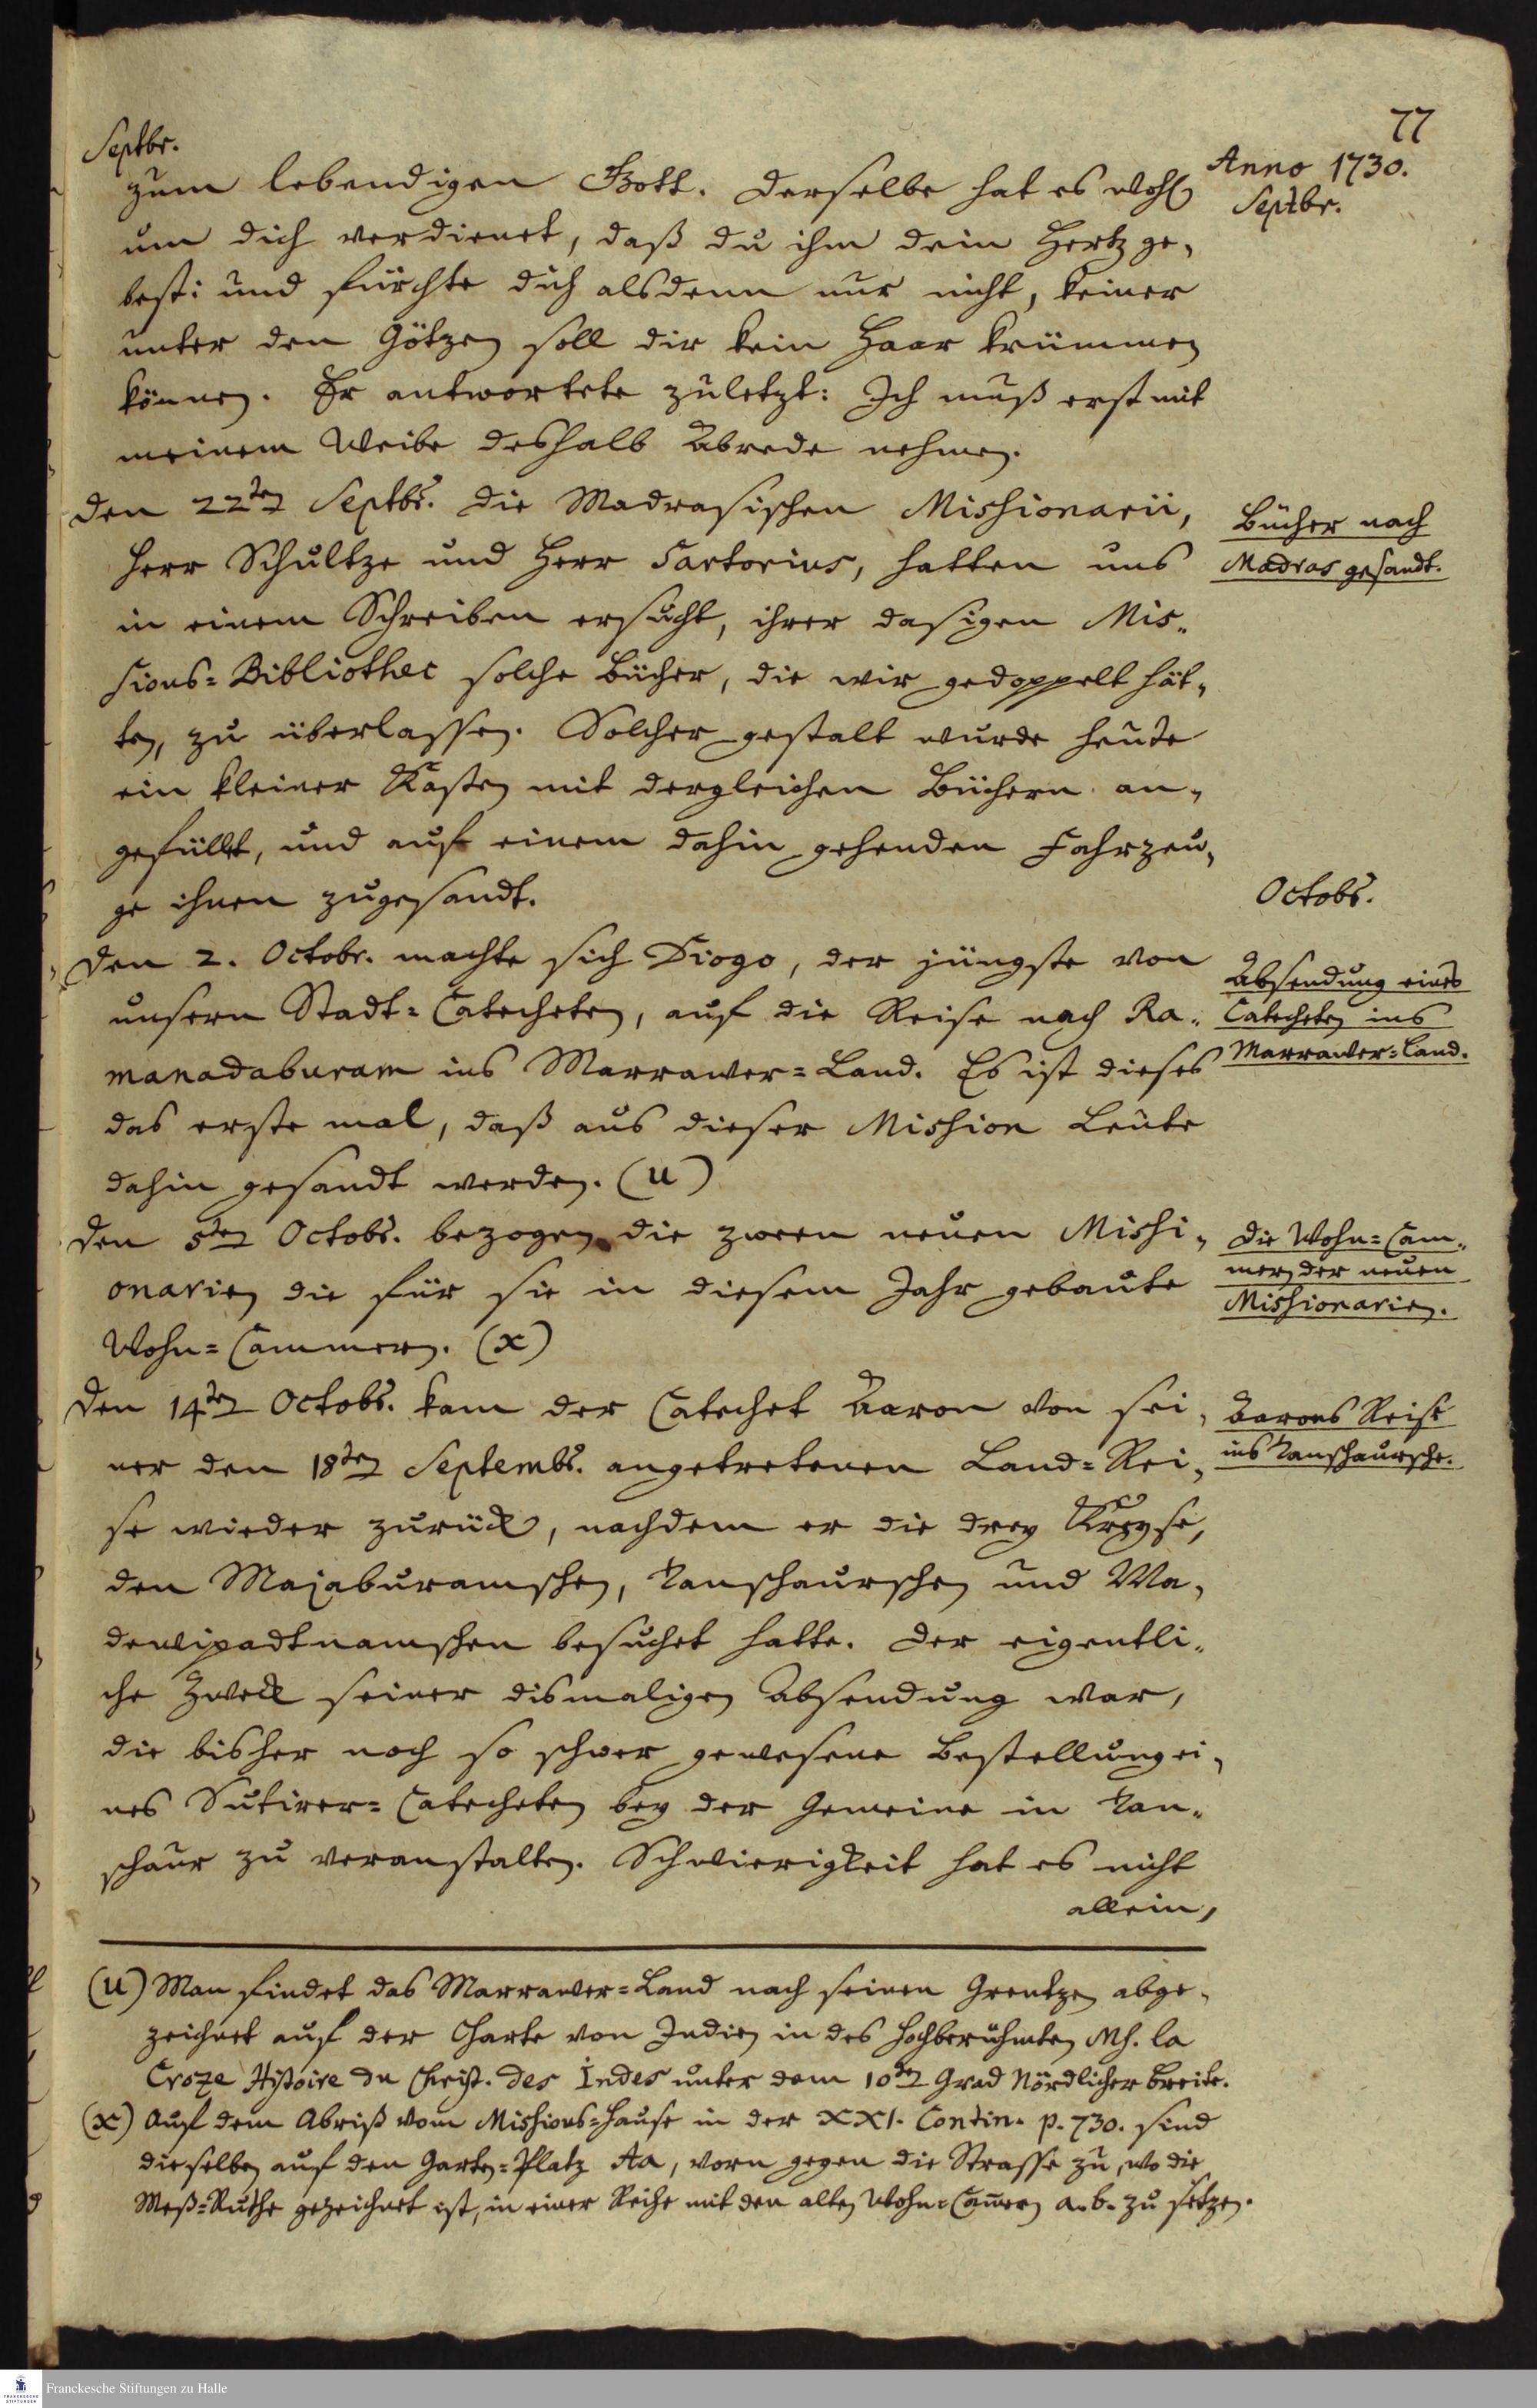 77
Septbr.
Anno 1730.
Septbr.
zum lebendigen Gott. Derselbe hat es wohl
um dich verdienet, daß du ihm dein Hertz ge-
best: und fürchte dich alsdenn nur nicht, keiner
unter den Götzen soll dir kein Haar krümmen
können. Er antwortete zuletzt: Ich muß erst mit
meinem Weibe deshalb Abrede nehmen.
Den 22ten Septbr. die Madrasischen Missionarii,
Herr Schultze und Herr Sartorius, hatten uns
in einem Schreiben ersucht, ihrer dasigen Mis-
sions=Bibliothec solche Bücher, die wir gedoppelt hät-
ten, zu überlassen. Solcher gestalt wurde heute
ein kleiner Kasten mit dergleichen Büchern an-
gefüllt, und auf einem dahin gehenden Fahrzeu-
ge ihnen zugesandt.
Bücher nach
Madras gesandt.
Octobr.
Den 2. Octobr. machte sich Diogo, der jüngste von
unsern Stadt=Catecheten, auf die Reise nach Ra-
manadaburam ins Marrawer=Land. Es ist dieses
das erste mal, daß aus dieser Mission Leute
dahin gesandt werden. (u)
Absendung eines
Catecheten ins
Marrawer=Land.
Den 5ten Octobr. bezogen die zween neuen Missi-
onarien die für sie in diesem Jahr gebaute
Wohn=Cammern. (x)
Die Wohn=Cam-
mern der neuen
Missionarien.
Den 14ten Octobr. kam der Catechet Aaron von sei-
ner den 18ten Septembr. angetretenen Land=Rei-
se wieder zurück, nachdem er die drey Kreyse,
den Majaburamschen, Tanschaurschen und Ma-
dewipadtnamschen besuchet hatte. Der eigentli-
che Zweck seiner dismaligen Absendung war,
die bisher noch so schwer gewesene Bestellung ei-
nes Sutirer=Catecheten bey der Gemeine in Tan-
schaur zu veranstalten. Schwierigkeit hat es nicht
allein,
Aarons Reise
ins Tanschaursche.
(u) Man findet das Marrawer=Land nach seinen Grentzen abge-
zeichnet auf der Charte von Indien in des hochberühmten Mh. la
Croze Histoire du Christ. des Indes unter dem 10ten Grad Nördlicher Breite.
(x) Auf dem Abriß vom Missions=Hause in der XXI. Contin. p. 730. sind
dieselben auf den Garten=Platz Aa, vorn gegen die Strasse zu, wo die
Meß=Ruthe gezeichnet ist, in einer Reihe mit den alten Wohn=Cam̅ern a. b. zu setzen.
Franckesche Stiftungen zu Halle